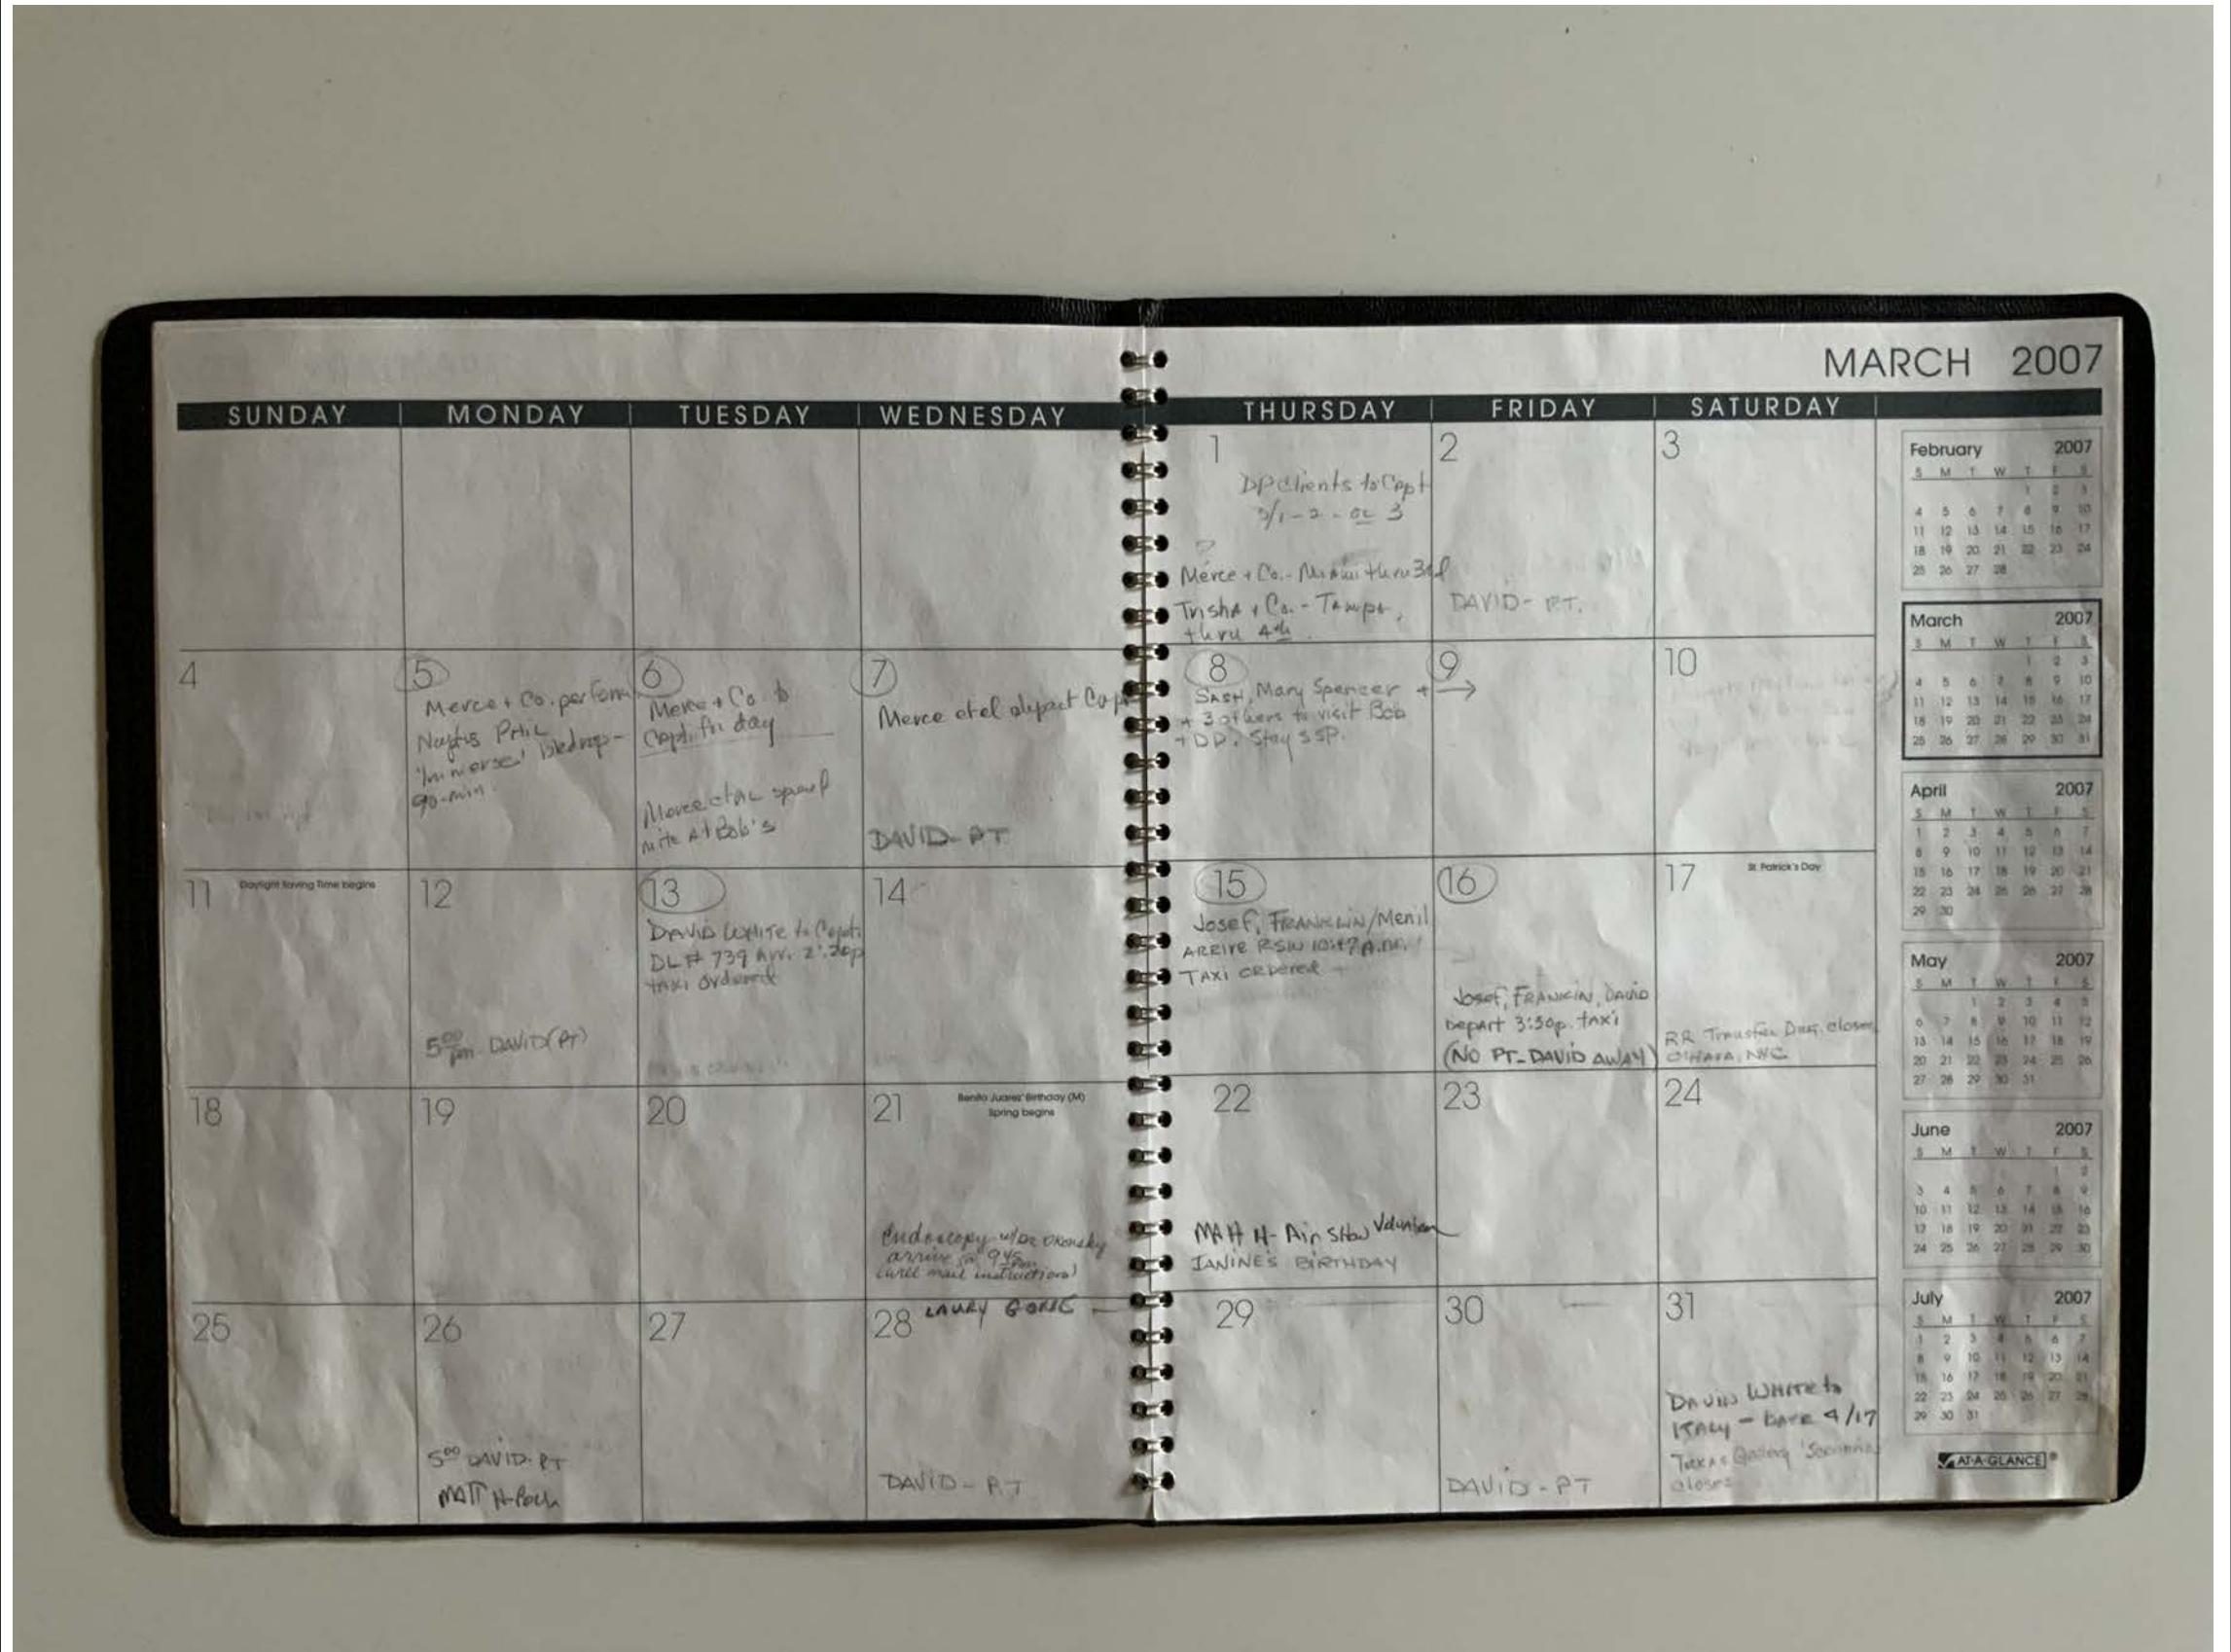 MARCH 2007
SUNDAY MONDAY TUESDAY WEDNESDAY THURSDAY FRIDAY SATURDAY
1
DP clients to Capt
3/1-2- or 3
?
Merce + Co. - Miami thru 3rd
Trisha + Co. - Tampa,
thru 4th
2
DAVID - P.T.
3
4
5
Merce + Co. perform
90-min.
6
Merce + Co. to
Capt. for day
Merce etal spend
nite at Bob's
7
Merce etal depart Capt
DAVID - PT
8
SASH, Mary Spencer +
+ 3 others to visit Bob
+ DP. Stay SSP.
9
→
10
11 Daylight Saving Time begins
12
5:00 pm DAVID (PT)
13
DAVID WHITE to Capt.
DL# 739 Arr. 2:20p
taxi ordered
14
15
Josef, FRANKLIN/Menil
ARRIVE RSW 10:47 A.M.
TAXI ORDERED
16
Josef, FRANKLIN, DAVID
Depart 3:30p. taxi
(NO PT - DAVID AWAY)
17 St. Patrick's Day
RR Transfer Dwg. closes
O'HARA, NYC
18
19
20
21 Benito Juarez' Birthday (M)
Spring begins
Endoscopy w/Dr
arrive @ 945
(will mail instructions)
22
MATT H - Air Show Volunteer
JANINE'S BIRTHDAY
23
24
25
26
5:00 DAVID-PT
MATT H-
27
28 LAURY
DAVID - PT
29
30
DAVID - PT
31
DAVID WHITE to
ITALY - back 4/17
Texas Gallery
closes
February 2007
S M T W T F S
1 2 3
4 5 6 7 8 9 10
11 12 13 14 15 16 17
18 19 20 21 22 23 24
25 26 27 28
March 2007
S M T W T F S
1 2 3
4 5 6 7 8 9 10
11 12 13 14 15 16 17
18 19 20 21 22 23 24
25 26 27 28 29 30 31
April 2007
S M T W T F S
1 2 3 4 5 6 7
8 9 10 11 12 13 14
15 16 17 18 19 20 21
22 23 24 25 26 27 28
29 30
May 2007
S M T W T F S
1 2 3 4 5
6 7 8 9 10 11 12
13 14 15 16 17 18 19
20 21 22 23 24 25 26
27 28 29 30 31
June 2007
S M T W T F S
1 2
3 4 5 6 7 8 9
10 11 12 13 14 15 16
17 18 19 20 21 22 23
24 25 26 27 28 29 30
July 2007
S M T W T F S
1 2 3 4 5 6 7
8 9 10 11 12 13 14
15 16 17 18 19 20 21
22 23 24 25 26 27 28
29 30 31
AT-A-GLANCE®